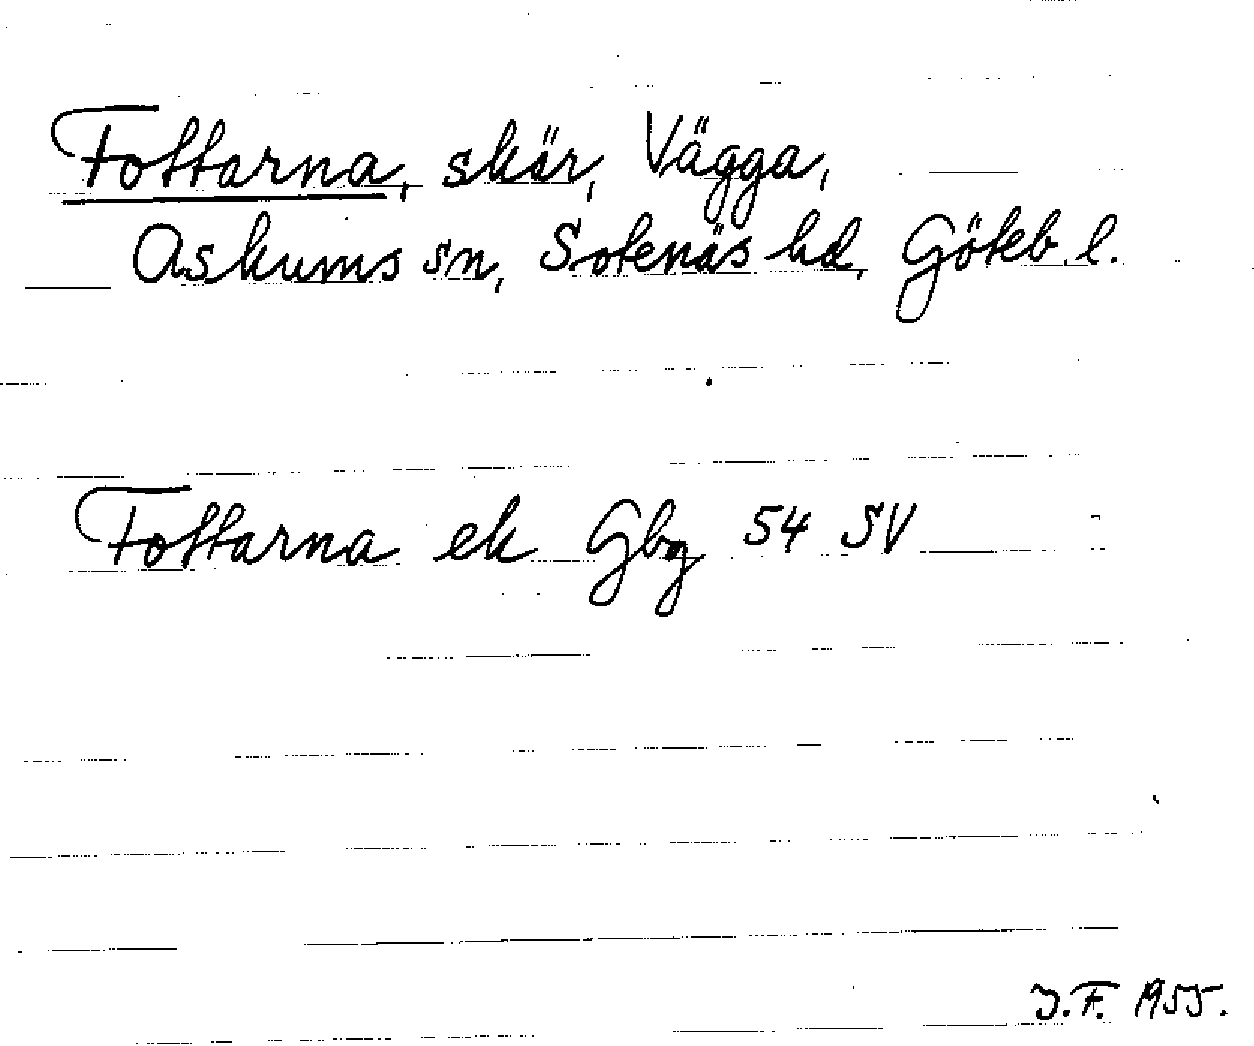 Tottarna, skär, Vägga,
Askums sn, Sotenäs hd, Göteb. l.
Tottarna ek Gbg 54 SV
J.F. 1955.